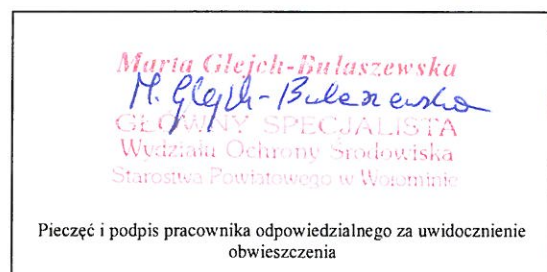 Marta Glejch-Bułaszewska
M. Glejch-Bułaszewska
GŁÓWNY SPECJALISTA
Wydziału Ochrony Środowiska
Starostwa Powiatowego w Wołominie
Pieczęć i podpis pracownika odpowiedzialnego za uwidocznienie
obwieszczenia